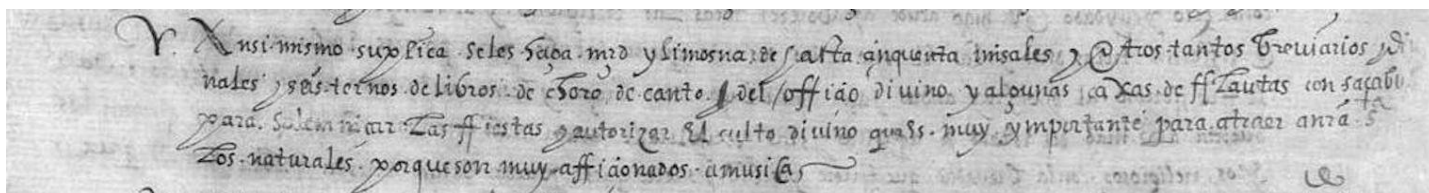 V. Ansi mismo suplica se les haga mrd y limosna de hasta çinquenta misales y otros tantos breviarios y di
nales y seis ternos de libros de choro de canto y del offiçio divino y algunas caxas de fflautas con sacabu
para solemnizar las ffiestas y autorizar el culto divino que es muy ymportante para atraer a nrã sta fe
Los naturales porque son muy affiçionados a musica